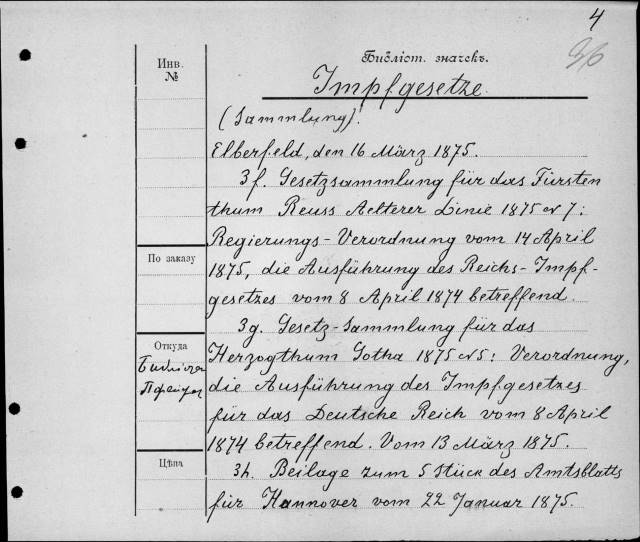 4
36
Инв.
№
Библiот. значекъ.
Impfgesetze
(Sammlung).
Elberfeld, den 16 März 1875.
3f. Gesetzsammlung für das Fürsten
thum Reuss Aelterer Linie 1875 № 7:
Regierungs-Verordnung vom 14 April
По заказу
1875, die Ausführung des Reichs-Impf-
gesetzes vom 8 April 1874 betreffend.
3g. Gesetz-Sammlung für das
Откуда
Herzogthum Gotha 1875 №5: Verordnung,
die Ausführung des Impfgesetzes
für das Deutsche Reich vom 8 April
1874 betreffend. Vom 13 März 1875.
Цѣна
3h. Beilage zum 5 Stück des Amtsblatts
für Hannover vom 22 Januar 1875.